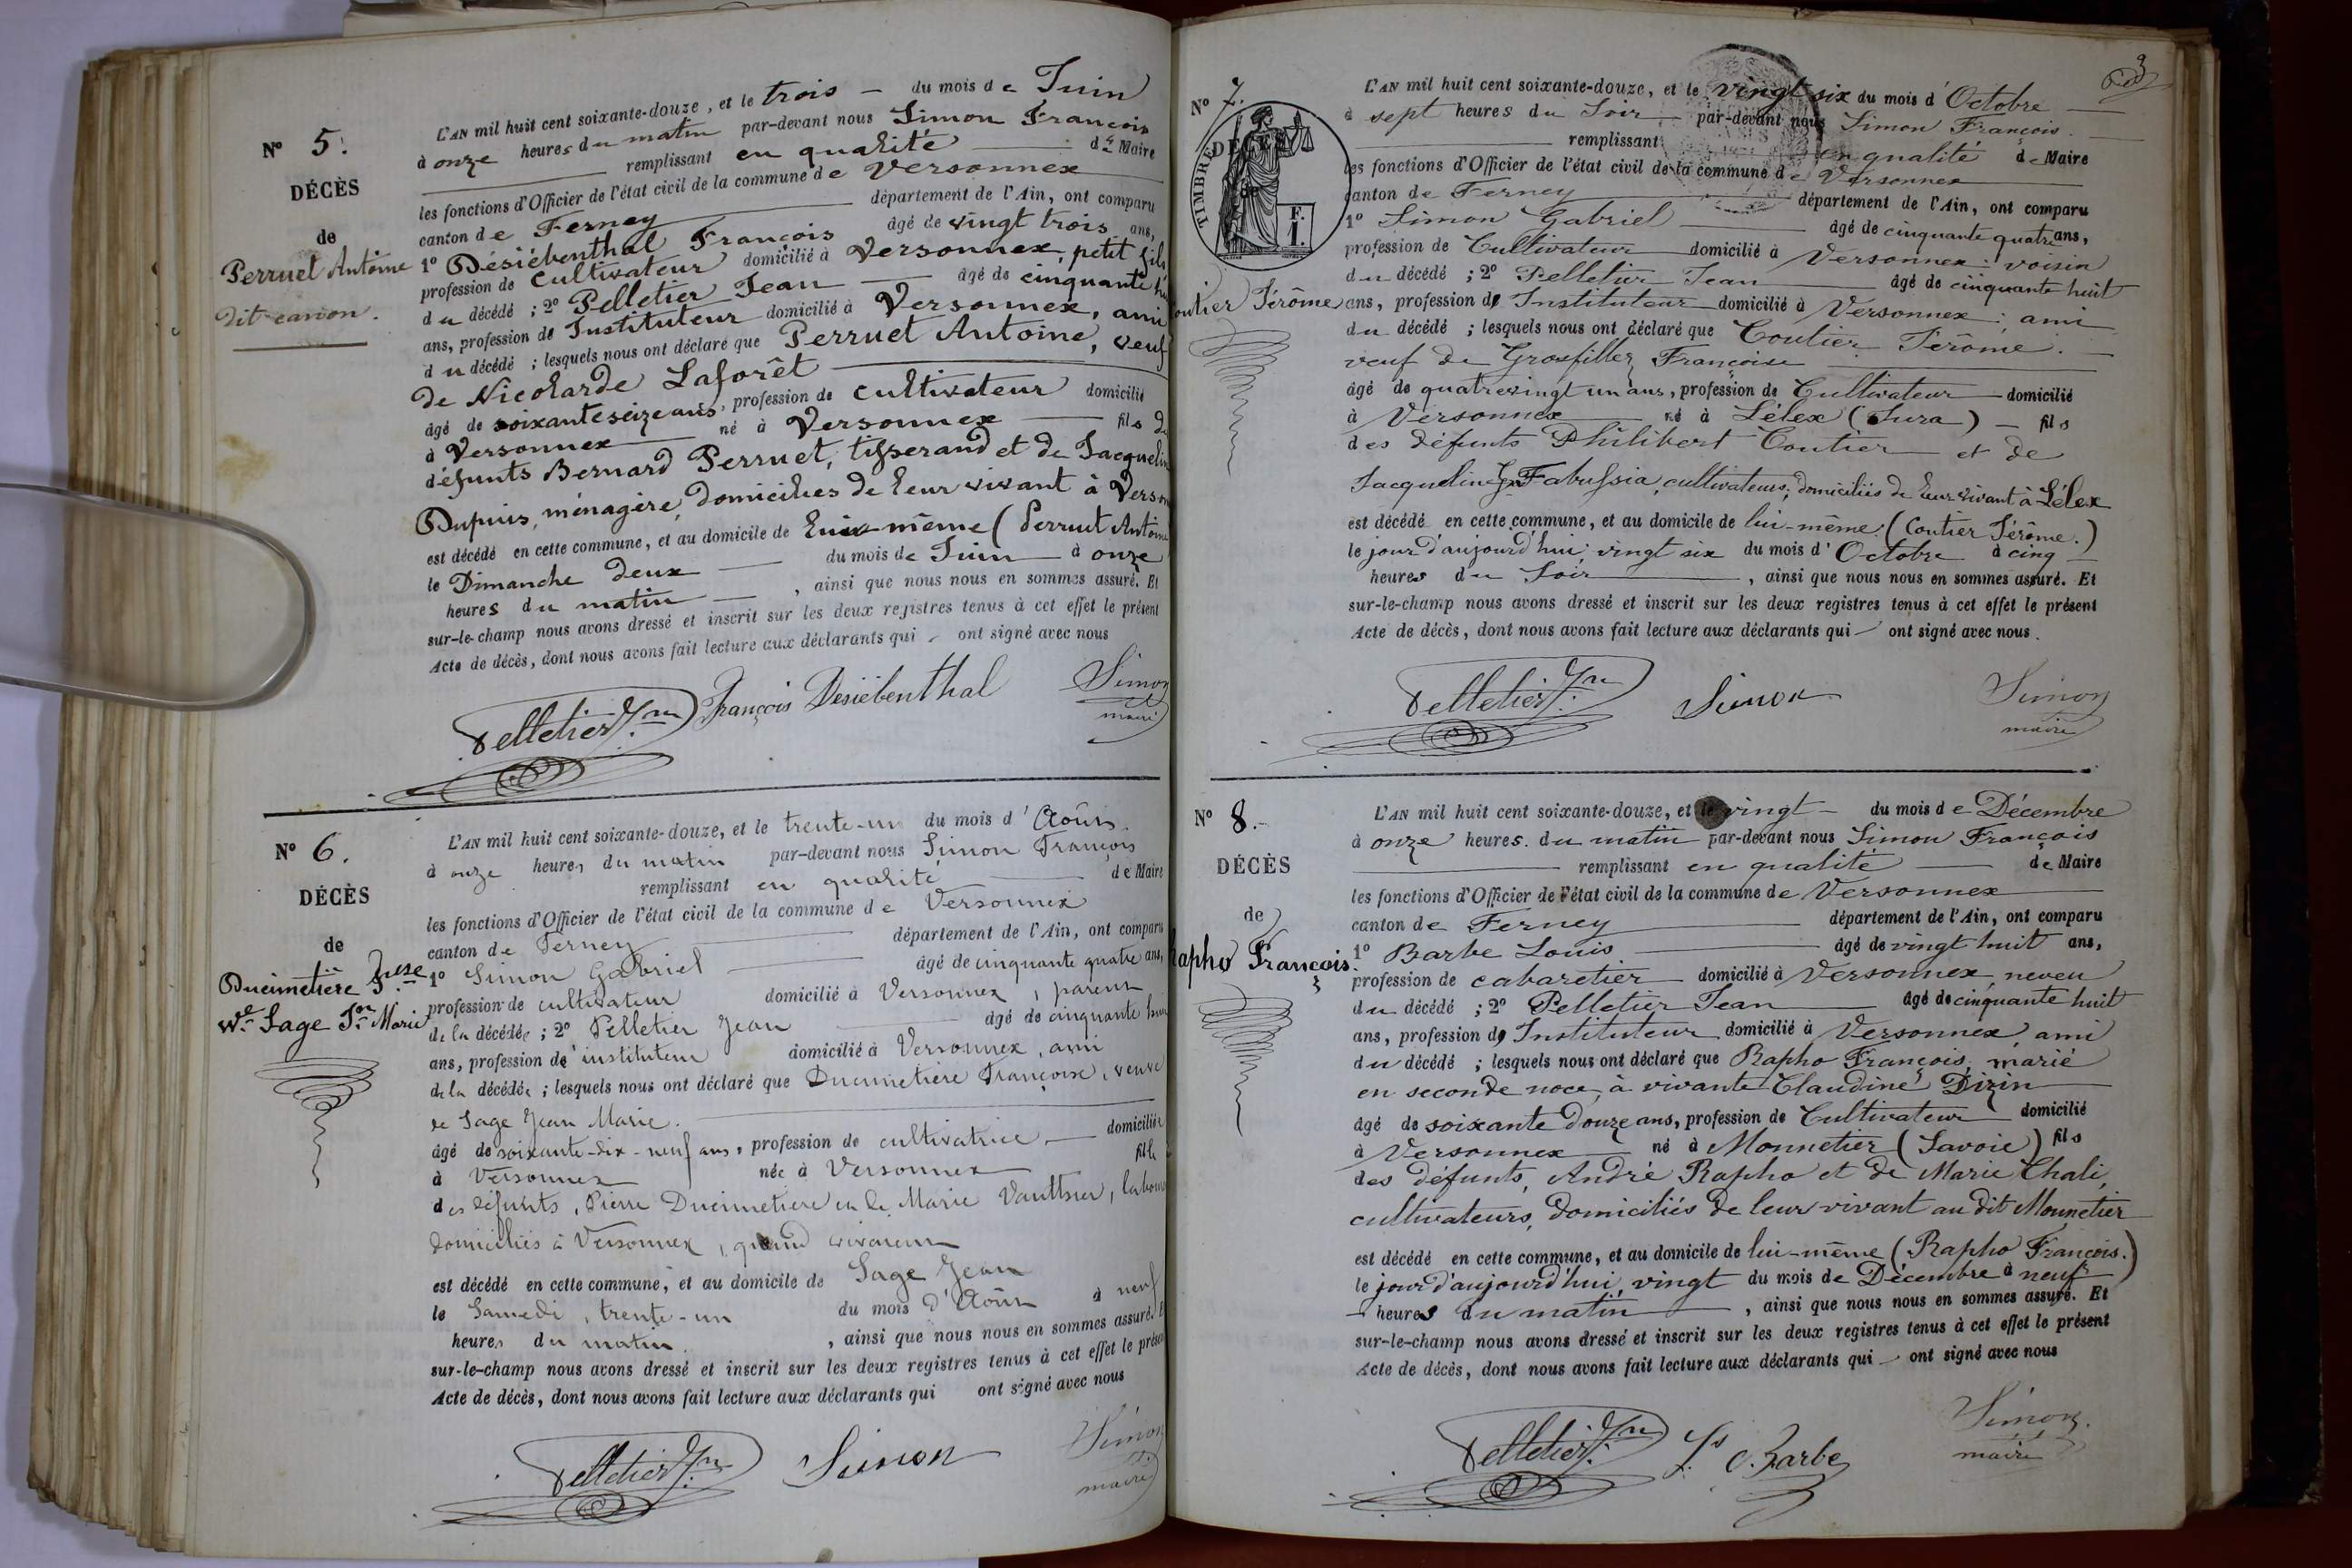 N° 5.
DÉCÈS
de
Perruet Antoine
dit canon.
L'AN mil huit cent soixante-douze, et le trois — du mois de Juin
à onze heures du matin par-devant nous Simon François
remplissant en qualité de Maire
les fonctions d'Officier de l'état civil de la commune de Versonnex
canton de Ferney département de l'Ain, ont comparu
1° Désiébenthal François âgé de vingt trois ans,
profession de Cultivateur domicilié à Versonnex, petit fils
du décédé ; 2° Pelletier Jean âgé de cinquante
ans, profession de Instituteur domicilié à Versonnex, ami
du décédé ; lesquels nous ont déclaré que Perruet Antoine, veuf
de Nicolarde Laforêt
âgé de soixante seize ans, profession de cultivateur domicilié
à Versonnex né à Versonnex fils de
défunts Bernard Perruet, tisserand et de Jacqueline
Dupuis, ménagère, domiciliés de leur vivant à Verson
est décédé en cette commune, et au domicile de lui-même (Perruet Antoine
le Dimanche deux du mois de Juin à onze
heures du matin, ainsi que nous nous en sommes assuré. Et
sur-le-champ nous avons dressé et inscrit sur les deux registres tenus à cet effet le présent
Acte de décès, dont nous avons fait lecture aux déclarants qui — ont signé avec nous
Pelletier Jn François Désiébenthal Simon
maire
N° 6.
DÉCÈS
de
Ducimetière Fse
Ve Sage Jn Marie
L'AN mil huit cent soixante-douze, et le trente-un du mois d'Août
à onze heures du matin par-devant nous Simon François
remplissant en qualité de Maire
les fonctions d'Officier de l'état civil de la commune de Versonnex
canton de Ferney département de l'Ain, ont comparu
1° Simon Gabriel âgé de cinquante quatre ans,
profession de cultivateur domicilié à Versonnex, parent
de la décédée ; 2° Pelletier Jean âgé de cinquante huit
ans, profession de instituteur domicilié à Versonnex, ami
de la décédée ; lesquels nous ont déclaré que Ducimetière Françoise, veuve
de Sage Jean Marie.
âgé de soixante-dix-neuf ans, profession de cultivatrice — domiciliée
à Versonnex née à Versonnex fille
des défunts, Pierre Ducimetière et de Marie
domiciliés à Versonnex, quand vivaient
est décédé en cette commune, et au domicile de Sage Jean
le Samedi, trente-un du mois d'Août à neuf
heures du matin, ainsi que nous nous en sommes assuré. E
sur-le-champ nous avons dressé et inscrit sur les deux registres tenus à cet effet le présen
Acte de décès, dont nous avons fait lecture aux déclarants qui ont signé avec nous
Pelletier Jn Simon Simon
maire
N° 7.
DÉCÈS
de
TIMBRE
F.
I.
outier Jérôme
L'AN mil huit cent soixante-douze, et le vingt six du mois d'Octobre
à sept heures du Soir par-devant nous Simon François
remplissant en qualité de Maire
les fonctions d'Officier de l'état civil de la commune de Versonnex
canton de Ferney département de l'Ain, ont comparu
1° Simon Gabriel âgé de cinquante quatre ans,
profession de Cultivateur domicilié à Versonnex : voisin
du décédé ; 2° Pelletier Jean âgé de cinquante huit
ans, profession de Instituteur domicilié à Versonnex : ami
du décédé ; lesquels nous ont déclaré que Coutier Jérôme.
veuf de Grosfillex Françoise
âgé de quatrevingt un ans, profession de Cultivateur domicilié
à Versonnex né à Lélex (Jura) — fils
des défunts Philibert Coutier et de
Jacqueline cultivateurs, domiciliés de leur vivant à Lélex
est décédé en cette commune, et au domicile de lui-même (Coutier Jérôme.)
le jour d'aujourd'hui vingt six du mois d'Octobre à cinq
heures du Soir, ainsi que nous nous en sommes assuré. Et
sur-le-champ nous avons dressé et inscrit sur les deux registres tenus à cet effet le présent
Acte de décès, dont nous avons fait lecture aux déclarants qui — ont signé avec nous.
Pelletier Jn Simon Simon
maire
N° 8.
DÉCÈS
de
Rapho François.
L'AN mil huit cent soixante-douze, et le vingt — du mois de Décembre
à onze heures du matin par-devant nous Simon François
remplissant en qualité de Maire
les fonctions d'Officier de l'état civil de la commune de Versonnex
canton de Ferney département de l'Ain, ont comparu
1° Barbe Louis âgé de vingt huit ans,
profession de cabaretier domicilié à Versonnex, neveu
du décédé ; 2° Pelletier Jean âgé de cinquante huit
ans, profession de Instituteur domicilié à Versonnex, ami
du décédé ; lesquels nous ont déclaré que Rapho François, marié
en seconde noce, à vivante Claudine Dizin
âgé de soixante douze ans, profession de Cultivateur domicilié
à Versonnex né à Monnetier (Savoie) fils
des défunts, André Rapho et de Marie Chali,
cultivateurs, domiciliés de leur vivant au dit Monnetier
est décédé en cette commune, et au domicile de lui-même (Rapho François.)
le jour d'aujourd'hui, vingt du mois de Décembre à neuf
— heures du matin, ainsi que nous nous en sommes assuré. Et
sur-le-champ nous avons dressé et inscrit sur les deux registres tenus à cet effet le présent
Acte de décès, dont nous avons fait lecture aux déclarants qui — ont signé avec nous
Pelletier Jn Ls Barbe Simon.
maire